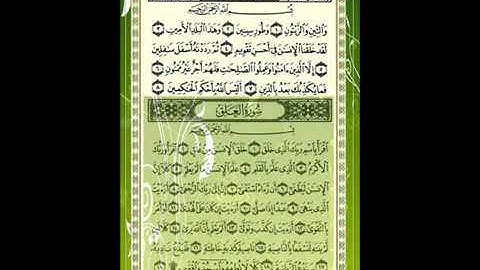 بِسْمِ اللَّهِ الرَّحْمَٰنِ الرَّحِيمِ
وَالتِّينِ وَالزَّيْتُونِ ١ وَطُورِ سِينِينَ ٢ وَهَٰذَا الْبَلَدِ الْأَمِينِ ٣
لَقَدْ خَلَقْنَا الْإِنسَانَ فِي أَحْسَنِ تَقْوِيمٍ ٤ ثُمَّ رَدَدْنَاهُ أَسْفَلَ سَافِلِينَ
٥ إِلَّا الَّذِينَ آمَنُوا وَعَمِلُوا الصَّالِحَاتِ فَلَهُمْ أَجْرٌ غَيْرُ مَمْنُونٍ ٦
فَمَا يُكَذِّبُكَ بَعْدُ بِالدِّينِ ٧ أَلَيْسَ اللَّهُ بِأَحْكَمِ الْحَاكِمِينَ ٨
سُورَةُ الْعَلَقِ
بِسْمِ اللَّهِ الرَّحْمَٰنِ الرَّحِيمِ
اقْرَأْ بِاسْمِ رَبِّكَ الَّذِي خَلَقَ ١ خَلَقَ الْإِنسَانَ مِنْ عَلَقٍ ٢ اقْرَأْ وَرَبُّكَ
الْأَكْرَمُ ٣ الَّذِي عَلَّمَ بِالْقَلَمِ ٤ عَلَّمَ الْإِنسَانَ مَا لَمْ يَعْلَمْ ٥ كَلَّا إِنَّ
الْإِنسَانَ لَيَطْغَىٰ ٦ أَن رَّآهُ اسْتَغْنَىٰ ٧ إِنَّ إِلَىٰ رَبِّكَ الرُّجْعَىٰ ٨ أَرَأَيْتَ
الَّذِي يَنْهَىٰ ٩ عَبْدًا إِذَا صَلَّىٰ ١٠ أَرَأَيْتَ إِن كَانَ عَلَى الْهُدَىٰ ١١ أَوْ أَمَرَ
بِالتَّقْوَىٰ ١٢ أَرَأَيْتَ إِن كَذَّبَ وَتَوَلَّىٰ ١٣ أَلَمْ يَعْلَم بِأَنَّ اللَّهَ يَرَىٰ ١٤ كَلَّا لَئِن
لَّمْ يَنتَهِ لَنَسْفَعًا بِالنَّاصِيَةِ ١٥ نَاصِيَةٍ كَاذِبَةٍ خَاطِئَةٍ ١٦ فَلْيَدْعُ نَادِيَهُ